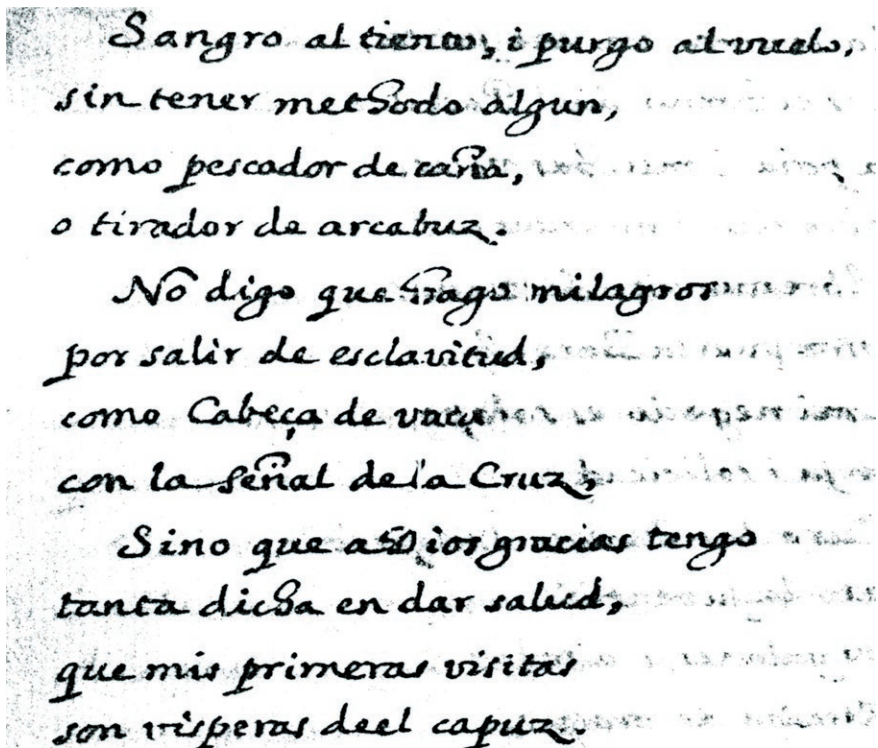 Sangro al tiento, i purgo al vuelo,
sin tener methodo algun,
como pescador de caña,
o tirador de arcabuz.
No digo que hago milagros
por salir de esclavitud,
como Cabeça de vaca
con la señal de la Cruz,
Sino que a Dios gracias tengo
tanta dicha en dar salud,
que mis primeras visitas
son visperas deel capuz.